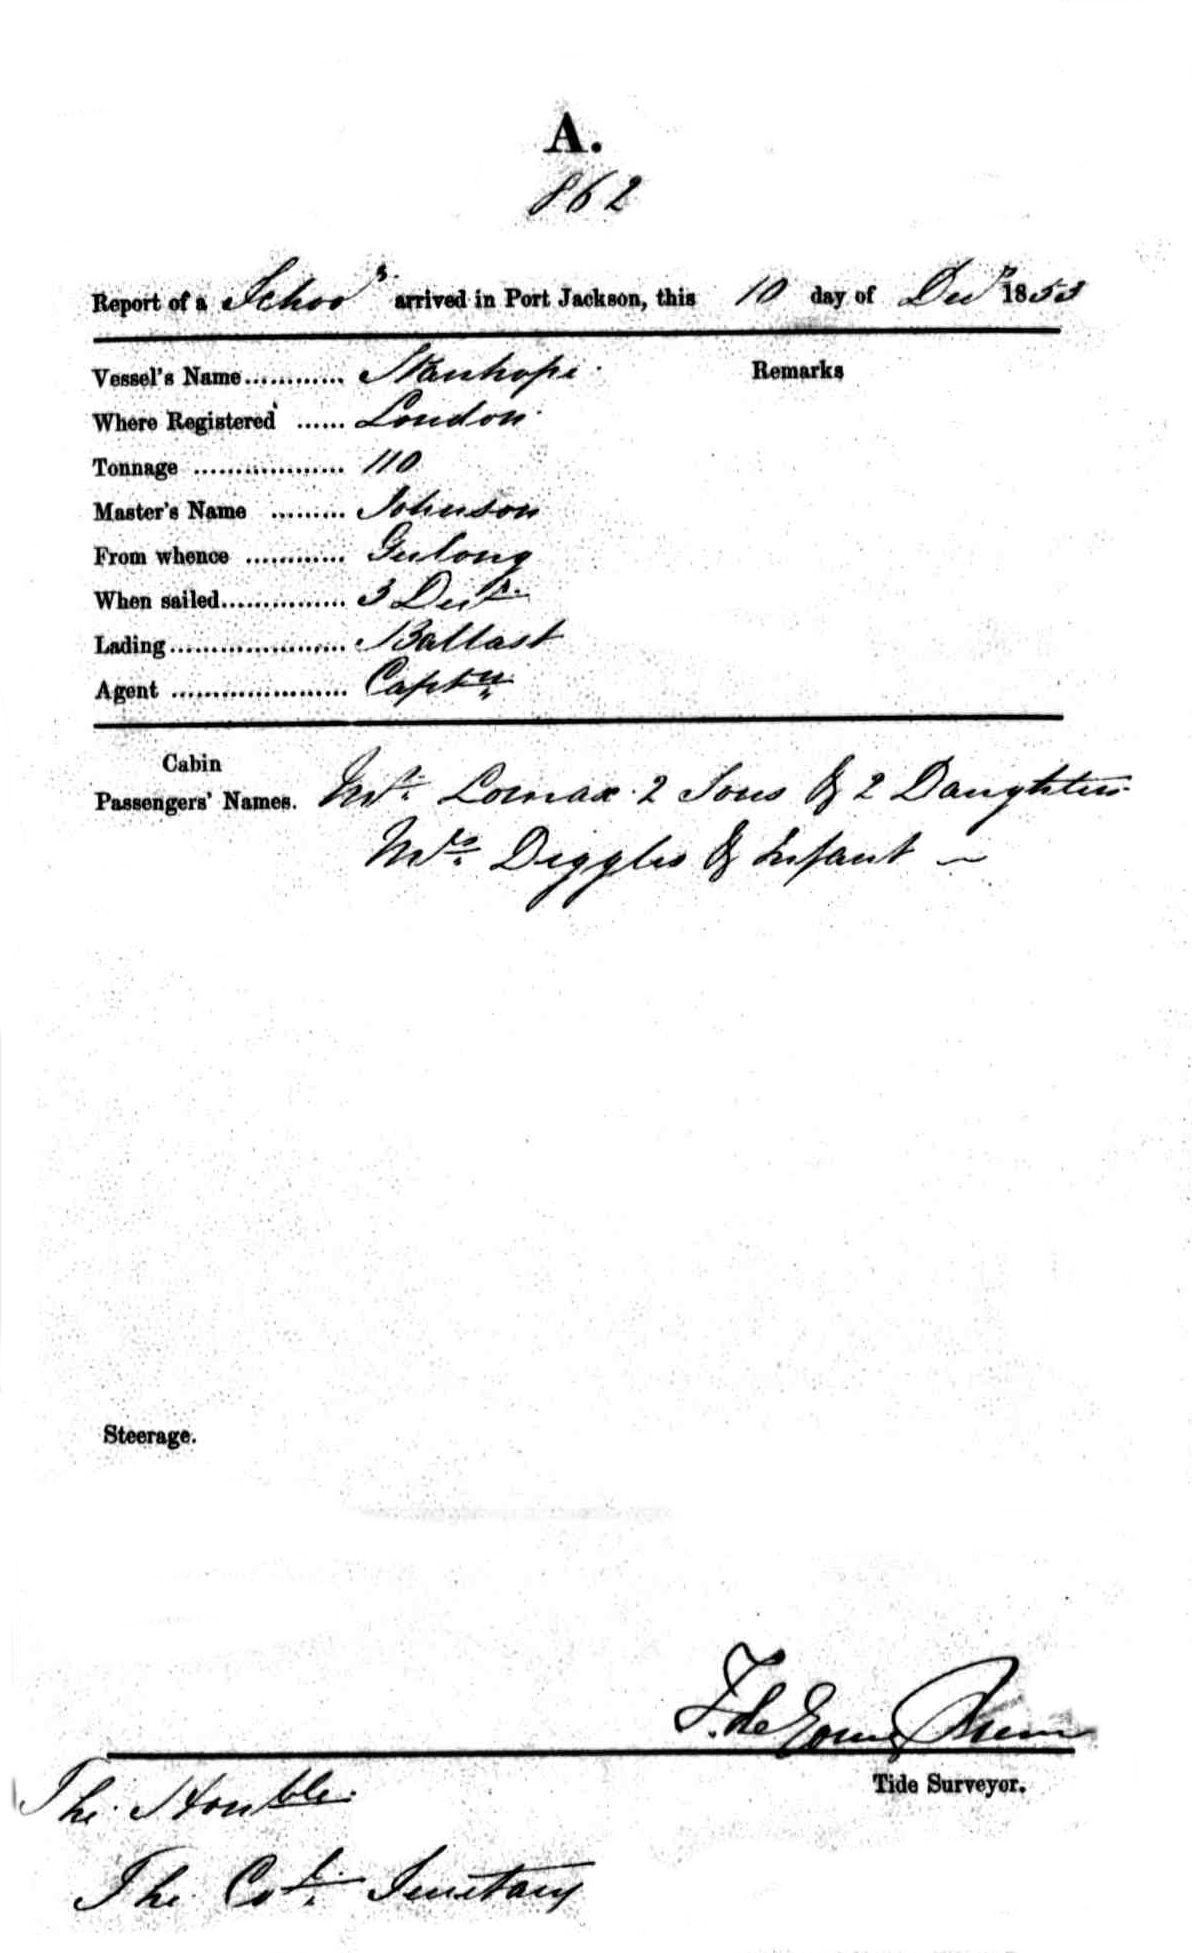 A.
862
Report of a Schoo^r arrived in Port Jackson, this 10 day of Dec^r 1853
Vessel's Name............ Stanhope Remarks
Where Registered ...... London
Tonnage .................. 110
Master's Name ......... Johnson
From whence ............ Geelong
When sailed............... 3 Dec^r
Lading..................... Ballast
Agent ..................... Capt^n
Cabin
Passengers' Names. M^r Lomax 2 Sons & 2 Daughters
M^rs Diggles & Infant —
Steerage.
Tide Surveyor.
The Hon^ble
The Col^l Secretary